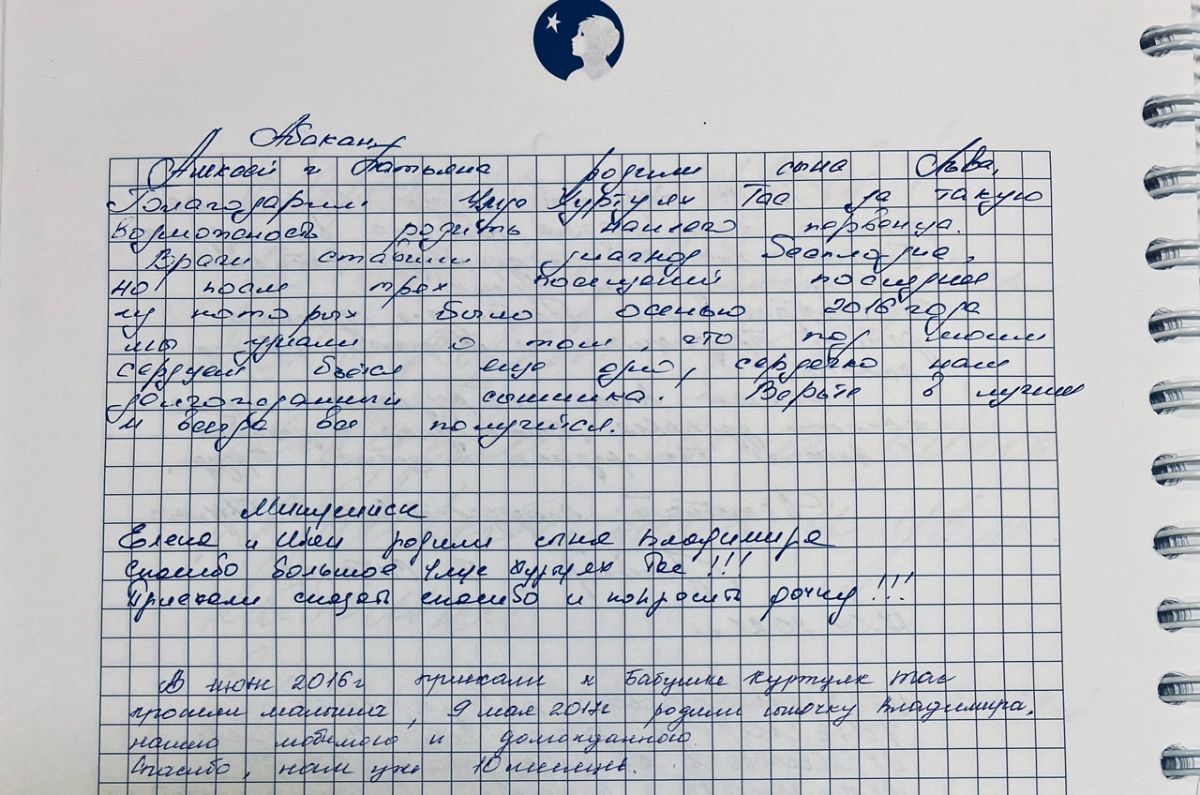 Абакан
Алексей и Татьяна родили сына Льва.
Благодарим Улуг Хуртуях Тас за такую
возможность родить нашего первенца.
Врачи ставили диагноз бесплодие,
но после трех посещений последнее
из которых было осенью 2016 года
мы узнали о том, что под моим
сердцем бьется еще одно, сердечко нашего
долгожданного сынишка. Верьте в лучшее
и всегда все получится.
Минусинск
Елена и родили сына Владимира
Спасибо большое Улуг Хуртуях Тас!!!
Приехали сказать спасибо и попросить дочку!!!
В июне 2016г приехали к Бабушке Куртуях тас
просили малыша, 9 мая 2017г родили сыночку Владимира,
нашего любимого и долгожданного.
Спасибо, нам уже 10 месяцев.